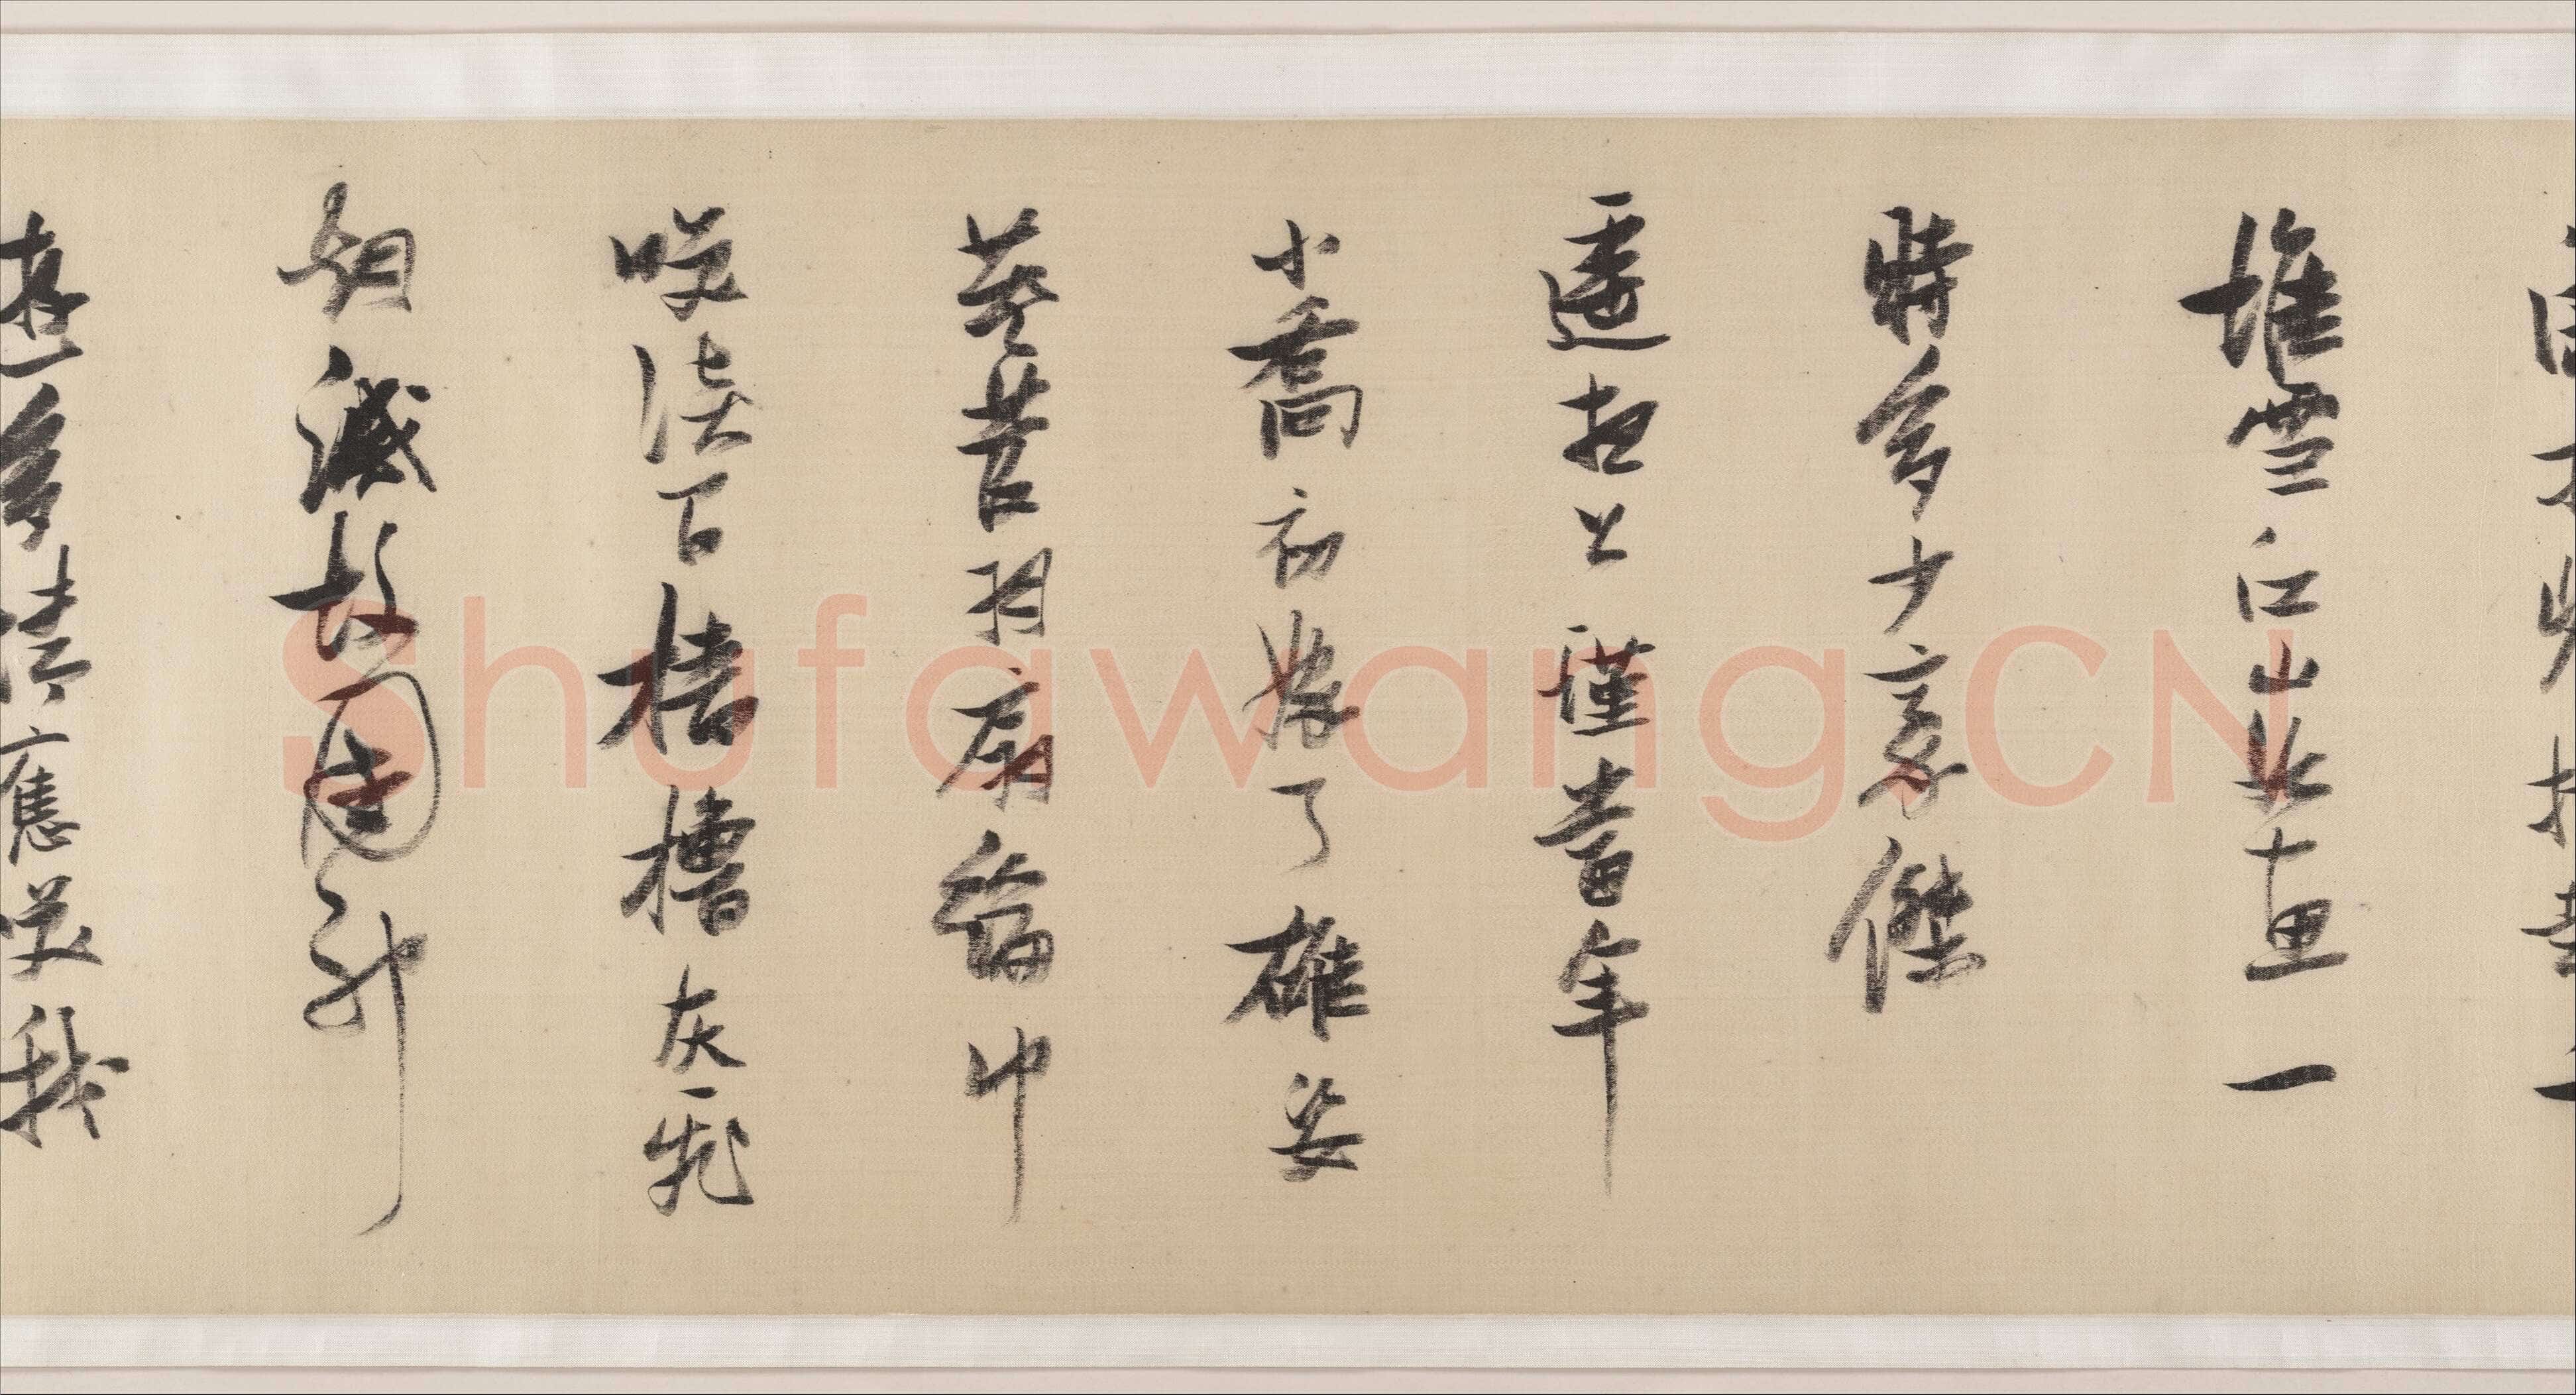 堆雪江山如畫一
時多少豪傑
遥想公瑾當年
小喬初嫁了雄姿
英發羽扇綸巾
笑談間檣櫓灰飛
烟滅故國神
遊多情應笑我
Shufawang.CN